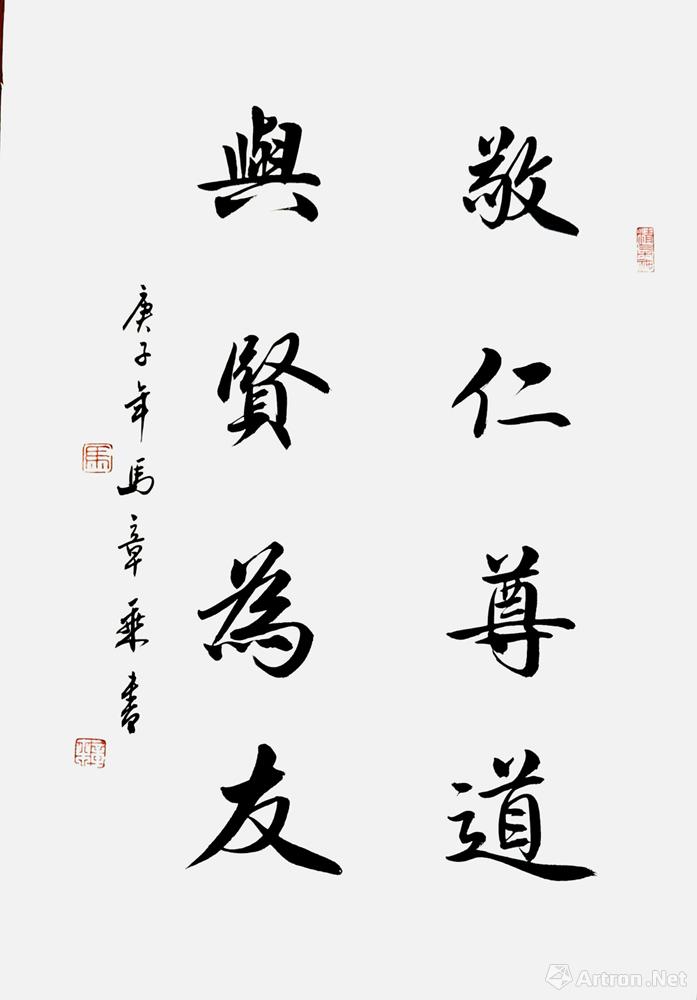 敬仁尊道
與賢為友
庚子年馬章乘書
馬
Artron.Net